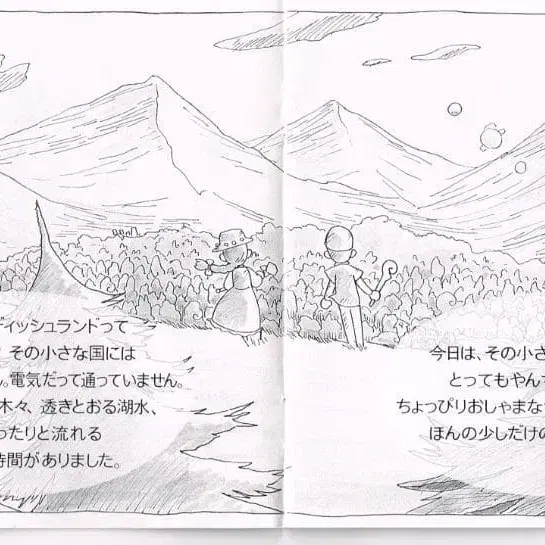 ディッシュランドって
その小さな国には
。電気だって通っていません。
木々、透きとおる湖水、
ったりと流れる
時間がありました。
今日は、その小さ
とってもやんち
ちょっぴりおしゃまな
ほんの少しだけの